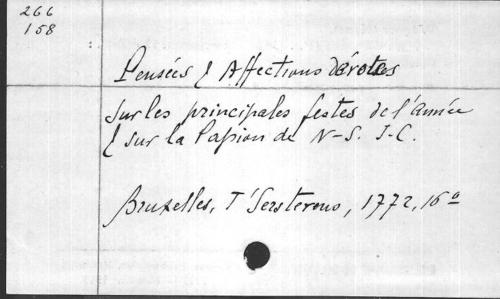 266
158
Pensées & Affections Dévotes
sur les principales festes de l'Année
& sur la Passion de N-S. J-C.
Bruxelles, T'Serstevens, 1772, 16°